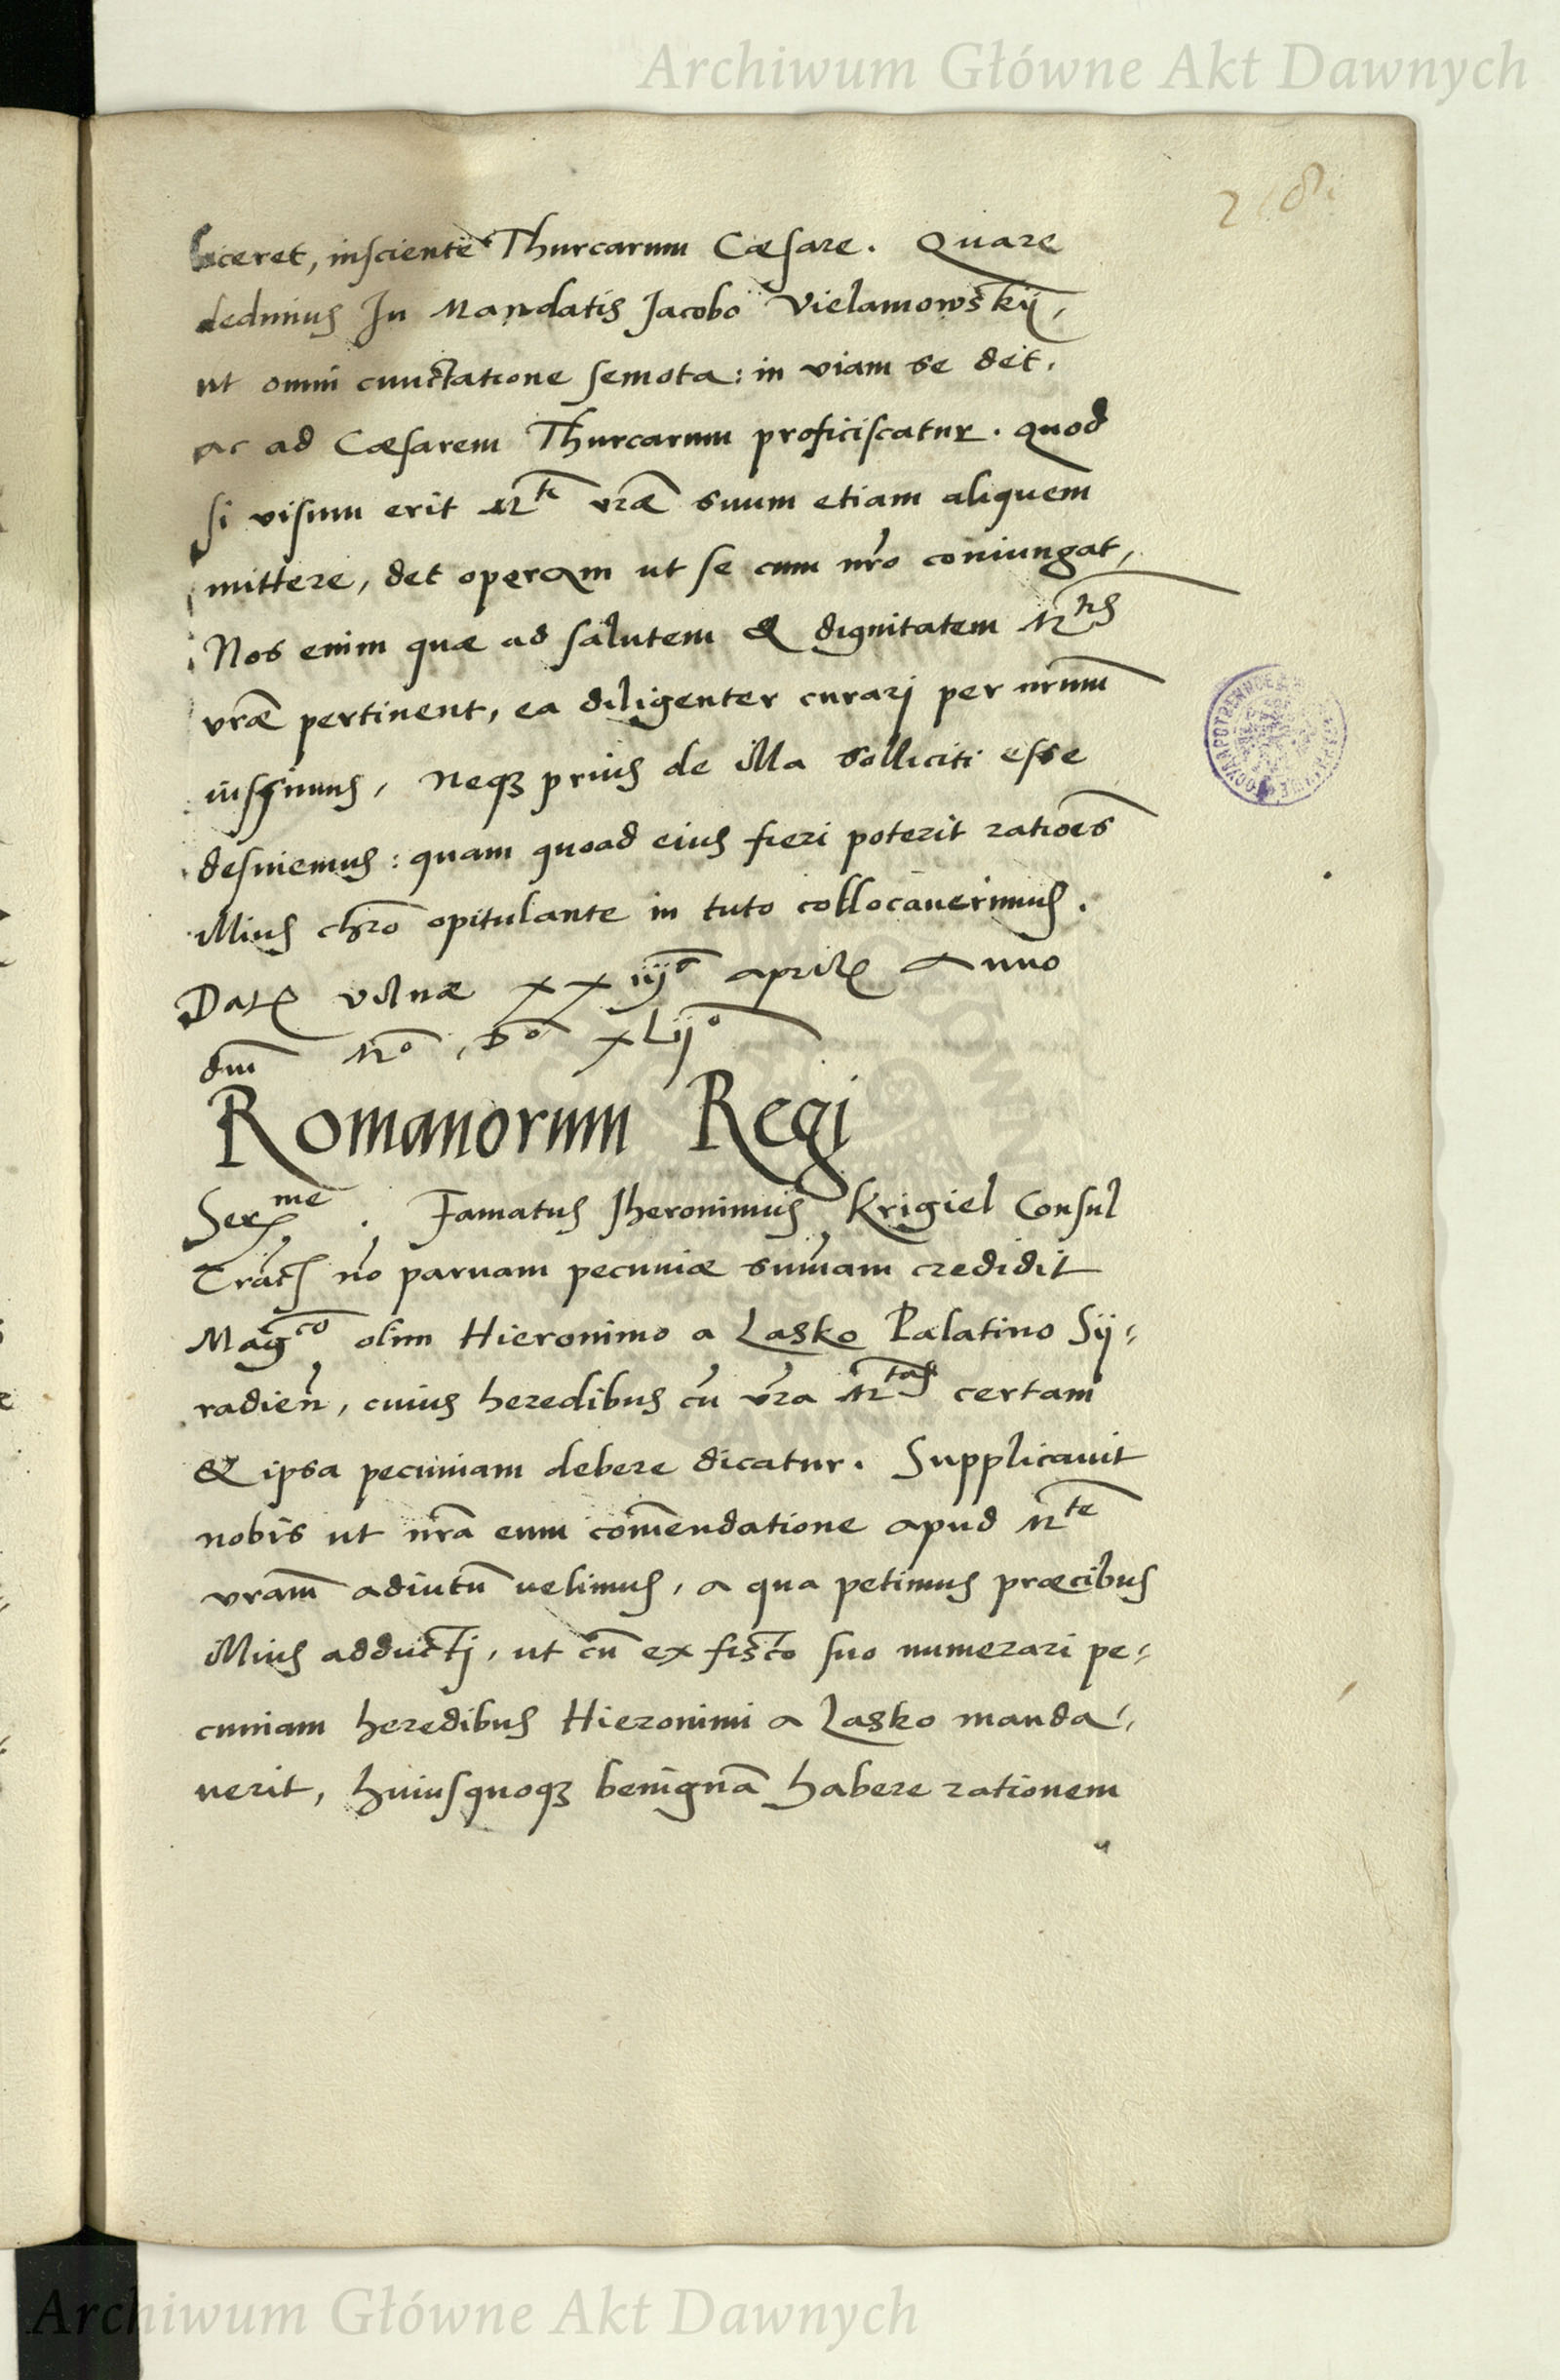 Archiwum Główne Akt Dawnych
liceret, insciente Thurcarum Cæsare. Quare
dedimus In Mandatis Jacobo Vielamowskij,
ut omni cunctatione semota: in viam se det,
ac ad Cæsarem Thurcarum proficiscatur. quod
si visum erit M^ti vræ suum etiam aliquem
mittere, det operam ut se cum nro coniungat,
Nos enim quæ ad salutem & dignitatem M^tis
vræ pertinent, ea diligenter curarj per nrum
iussimus, Neqꝫ prius de illa solliciti esse
desinemus: quam quoad eius fieri poterit ratioes
illius chro opitulante in tuto collocauerimus.
Datꝭ vilnæ xxiiij^a aprilꝭ anno
dni M^o, D^o xLij^o
Romanorum Regi
Ser^me. Famatus Jheronimus Krigiel Consul
Cracꝭ no paruam pecuniæ sumam credidit
Mag^co olim Hieronimo a Lasko Palatino Sij-
radien, cuius heredibus cu vra M^tas certam
& ipsa pecuniam debere dicatur. Supplicauit
nobis ut nra eum comendatione apud M^te
vram adiutu uelimus, a qua petimus præcibus
illius adductj, ut cu ex fisco suo numerari pe-
cuniam heredibus Hieronimi a Lasko manda-
uerit, huiusquoqꝫ benigna habere rationem
Archiwum Główne Akt Dawnych